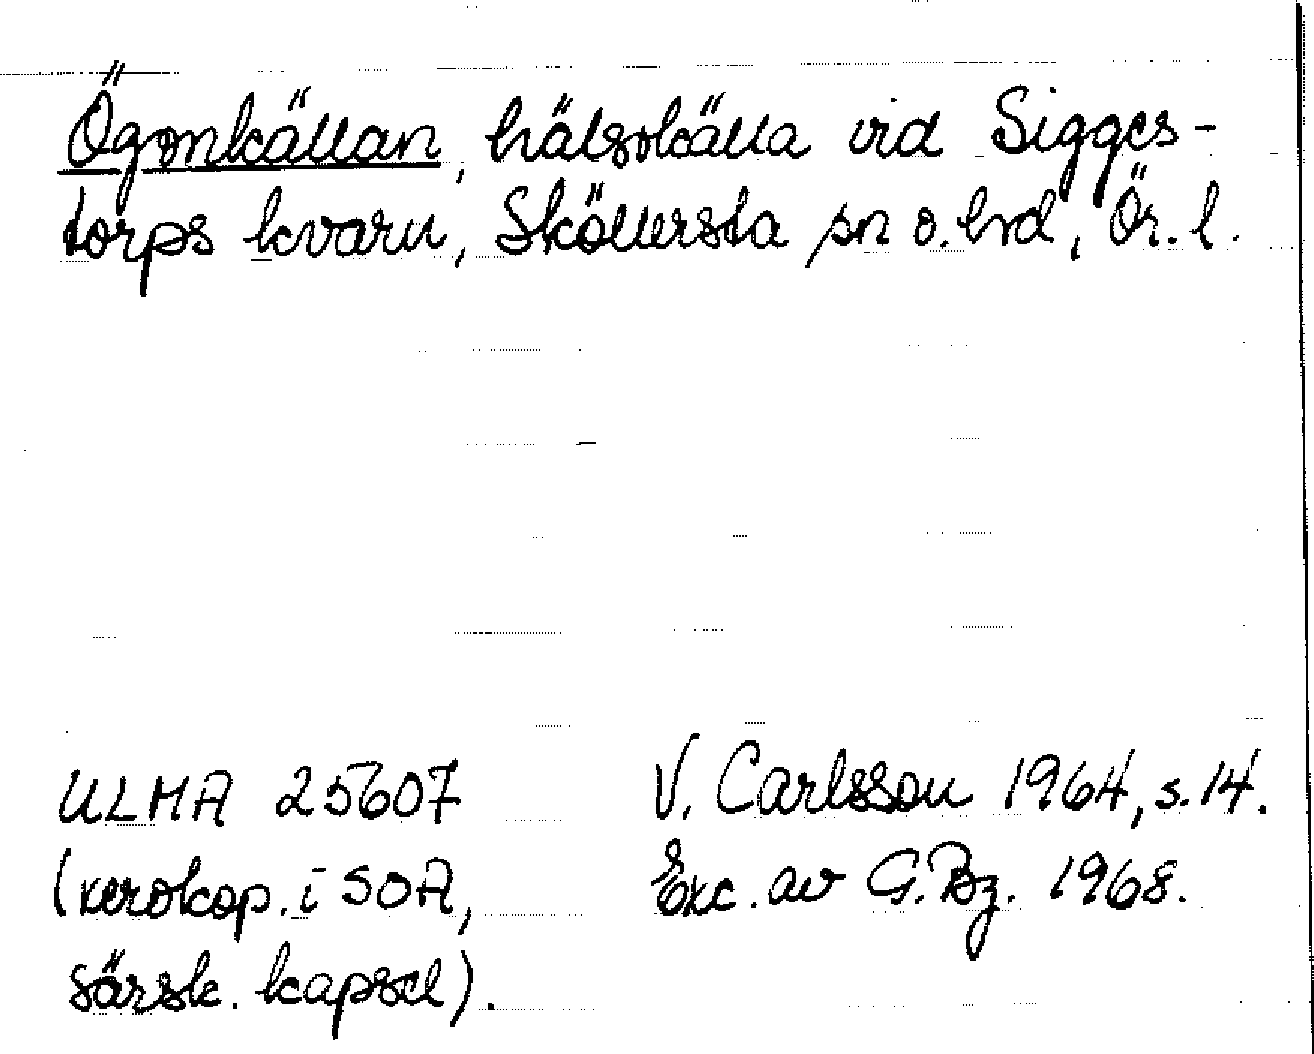 Ögonkällan, hälsokälla vid Sigges-
torps kvarn, Sköllersta sn o. hd, Ör. l.
ULMA 25607
(xerokop. i SOA,
särsk. kapsel).
V. Carlsson 1964, s. 14.
Exc. av G. Bz. 1968.